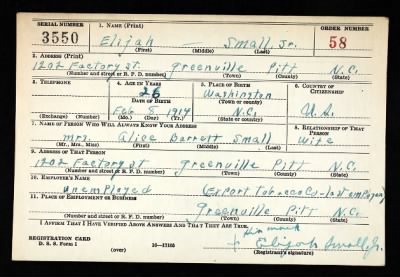 SERIAL NUMBER 1. NAME (Print) ORDER NUMBER
3550 Elijah Small, Jr. 58
(First) (Middle) (Last)
2. ADDRESS (Print)
1202 Factory st. Greenville Pitt N.C.
(Number and street or R. F. D. number) (Town) (County) (State)
3. TELEPHONE 4. AGE IN YEARS 5. PLACE OF BIRTH 6. COUNTRY OF CITIZENSHIP
26 Washington
DATE OF BIRTH (Town or county)
Feb 5 1914 N.C. U.S.
(Exchange) (Number) (Mo.) (Day) (Yr.) (State or country)
7. NAME OF PERSON WHO WILL ALWAYS KNOW YOUR ADDRESS 8. RELATIONSHIP OF THAT PERSON
Mrs. Alice Barrett Small wife
(Mr., Mrs., Miss) (First) (Middle) (Last)
9. ADDRESS OF THAT PERSON
1202 Factory st Greenville Pitt N.C.
(Number and street or R. F. D. number) (Town) (County) (State)
10. EMPLOYER'S NAME
unemployed (Export Tobacco Co - last employer)
11. PLACE OF EMPLOYMENT OR BUSINESS
Greenville Pitt N.C.
(Number and street or R. F. D. number) (Town) (County) (State)
I AFFIRM THAT I HAVE VERIFIED ABOVE ANSWERS AND THAT THEY ARE TRUE.
his mark
REGISTRATION CARD Elijah Small, Jr.
D. S. S. Form 1 (over) 16—17105 (Registrant's signature)